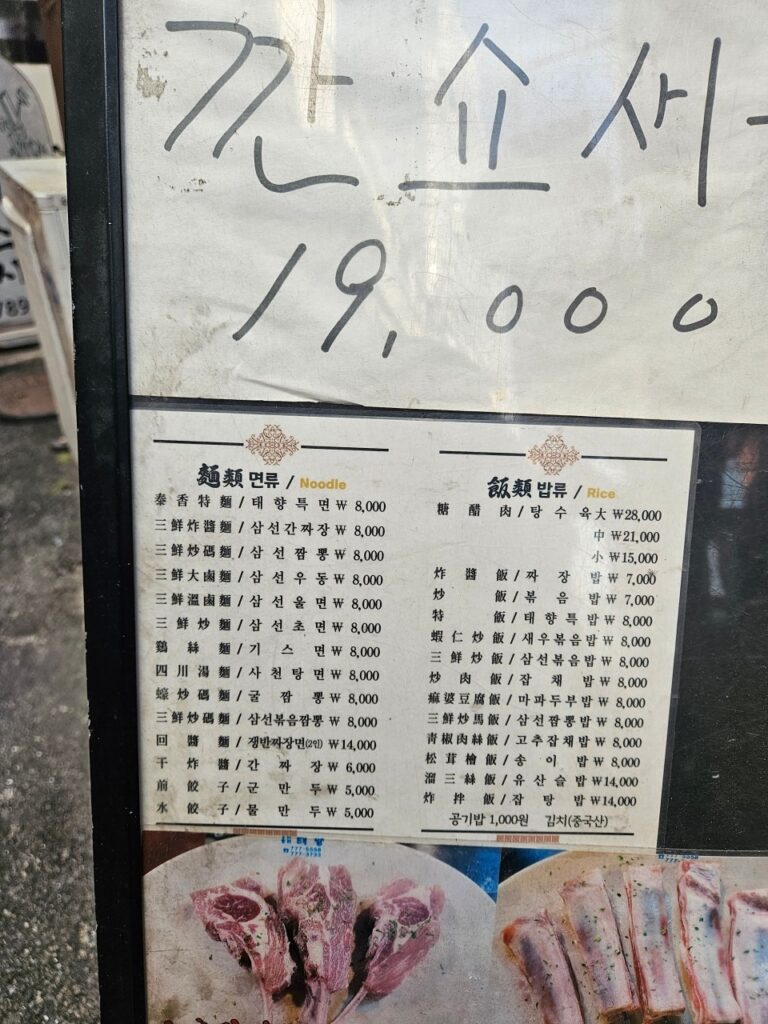 깐쇼새
19,000
麵類 면류 / Noodle
泰香特麵 / 태향특면 ₩ 8,000
三鮮炸醬麵 / 삼선간짜장 ₩ 8,000
三鮮炒碼麵 / 삼선짬뽕 ₩ 8,000
三鮮大鹵麵 / 삼선우동 ₩ 8,000
三鮮溫鹵麵 / 삼선울면 ₩ 8,000
三鮮炒麵 / 삼선초면 ₩ 8,000
鷄絲麵 / 기스면 ₩ 8,000
四川湯麵 / 사천탕면 ₩ 8,000
蠔炒碼麵 / 굴짬뽕 ₩ 8,000
三鮮炒碼麵 / 삼선볶음짬뽕 ₩ 8,000
回醬麵 / 쟁반짜장면(2인) ₩14,000
干炸醬 / 간짜장 ₩ 6,000
煎餃子 / 군만두 ₩ 5,000
水餃子 / 물만두 ₩ 5,000
飯類 밥류 / Rice
糖醋肉 / 탕수육 大 ₩28,000
中 ₩21,000
小 ₩15,000
炸醬飯 / 짜장밥 ₩ 7,000
炒飯 / 볶음밥 ₩ 7,000
特飯 / 태향특밥 ₩ 8,000
蝦仁炒飯 / 새우볶음밥 ₩ 8,000
三鮮炒飯 / 삼선볶음밥 ₩ 8,000
炒肉飯 / 잡채밥 ₩ 8,000
麻婆豆腐飯 / 마파두부밥 ₩ 8,000
三鮮炒馬飯 / 삼선짬뽕밥 ₩ 8,000
靑椒肉絲飯 / 고추잡채밥 ₩ 8,000
松茸檜飯 / 송이밥 ₩ 8,000
溜三絲飯 / 유산슬밥 ₩14,000
炸拌飯 / 잡탕밥 ₩14,000
공기밥 1,000원 김치(중국산)
777-3733